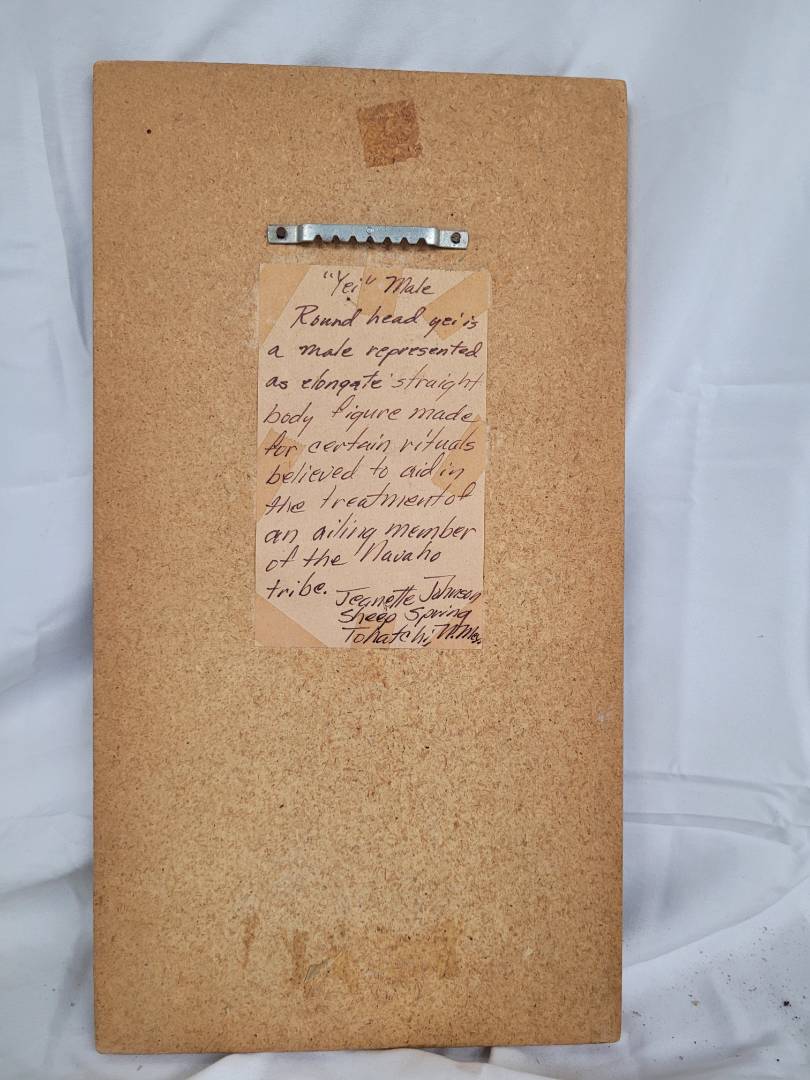 "Yei" Male
Round head yei is
a male represented
as elongate straight
body figure made
for certain rituals
believed to aid in
the treatment of
an ailing member
of the Navaho
tribe.
Jeanette Johnson
Sheep Spring
Tohatchi, N.Mex.